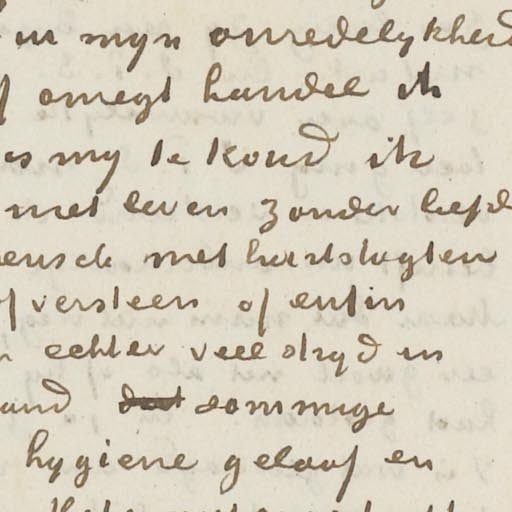 in myn onredelykheid
of onregt handel ik
is my te koud ik
niet leven zonder liefde
mensch met hartstogten
of versteen of enfin
echter veel stryd in
and dat sommige
hygiene geloof en